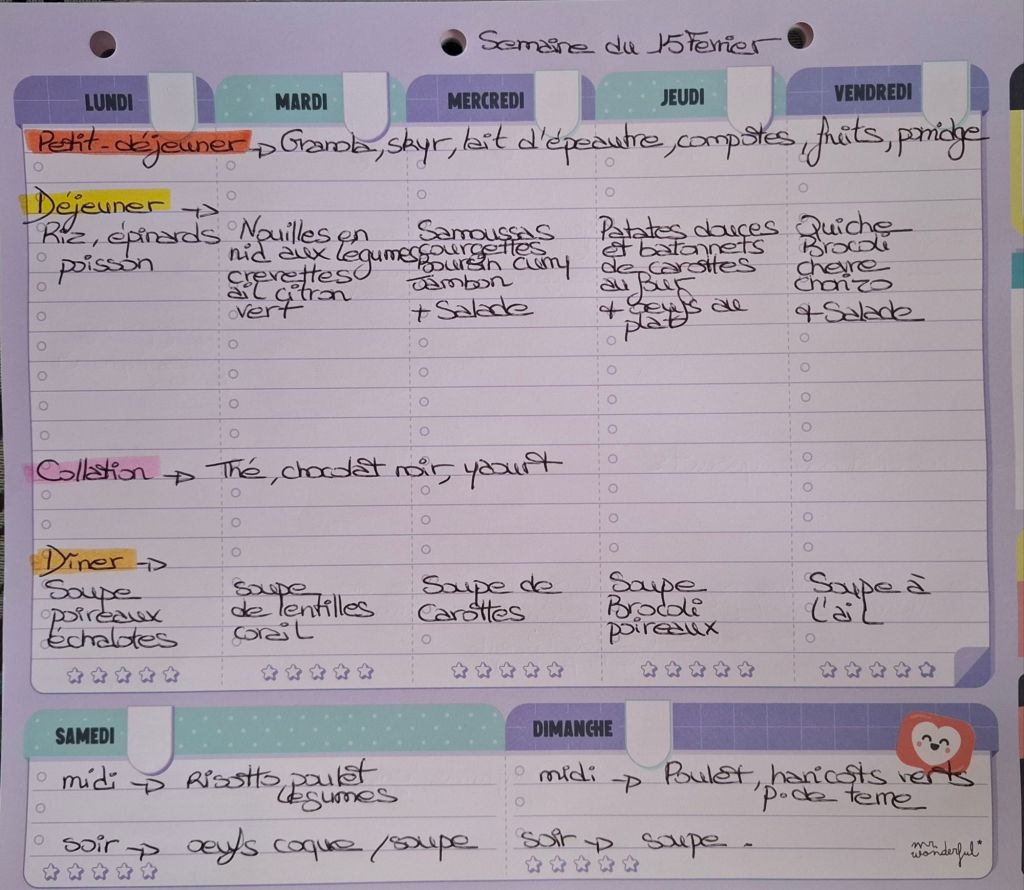 Semaine du 15 Fevrier
LUNDI MARDI MERCREDI JEUDI VENDREDI
Petit-déjeuner → Granola, skyr, lait d'épeautre, compotes, fruits, porridge
Déjeuner →
Riz, épinards
poisson
Nouilles en
nid aux legumes
crevettes
ail citron
vert
Samoussas
courgettes
boursin curry
Jambon
+ Salade
Patates douces
et batonnets
de carottes
au four
+ oeufs au
plat
Quiche
Brocoli
chevre
Chorizo
+ Salade
Collation → Thé, chocolat noir, yaourt
Dîner →
Soupe
poireaux
échalotes
soupe
de lentilles
corail
Soupe de
carottes
Soupe
Brocoli
poireaux
Soupe à
l'ail
SAMEDI
midi → Risotto, poulet
légumes
soir → oeufs coque / soupe
DIMANCHE
midi → Poulet, haricots verts
p. de terre
soir → soupe.
mr.
wonderful*